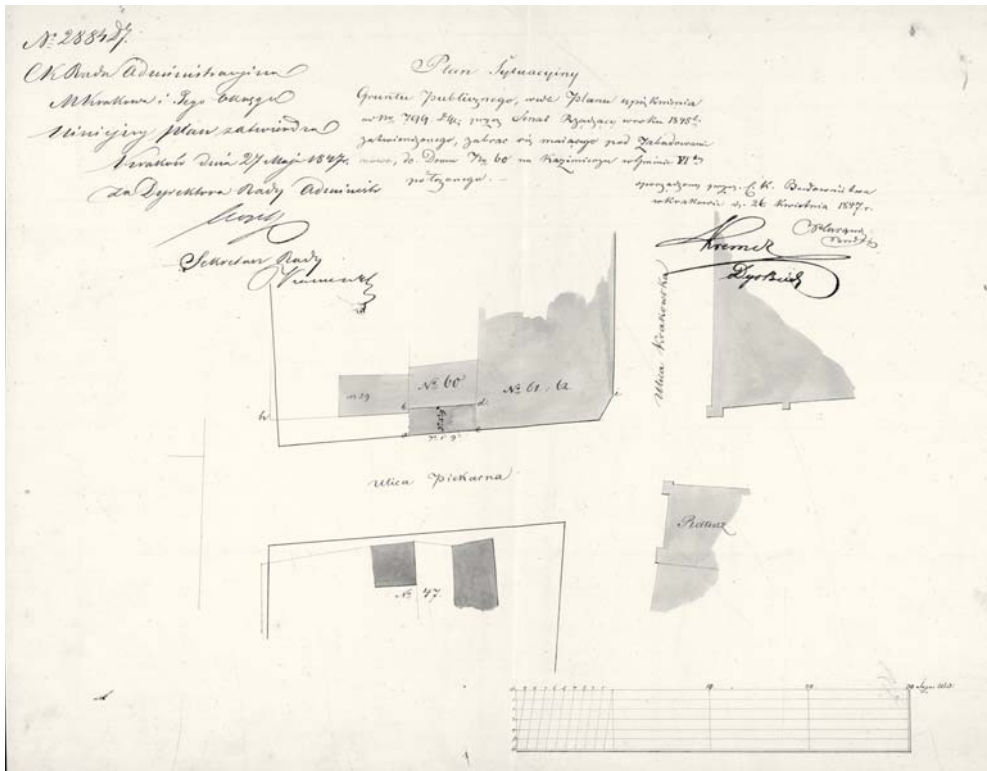 No 2884 Dz.
CK Rada Administracyjna
M Krakowa i Jego Okręgu
Niniejszy plan zatwierdza
Kraków dnia 27 Maja 1847r.
za Dyrektora Rady Administr
Sekretarz Rady
Plan Sytuacyjny
Gruntu Publicznego, wedle Planu upiększenia
przez Senat Rządzący w roku 1845
zatwierdzonego, zabrać się mającego pod Zabudowanie
nowe, do Domu No 60 na Kazimierzu w Gminie VI
położonego. —
sporządzony przez C. K. Budownictwo
w Krakowie d. 26 Kwietnia 1847 r.
Kremer
Dyr Bud
Ulica Krakowska
No 60
No 61. 62
h
b
d
i
a
c
Ulica Piekarna
Ratusz
No 47.